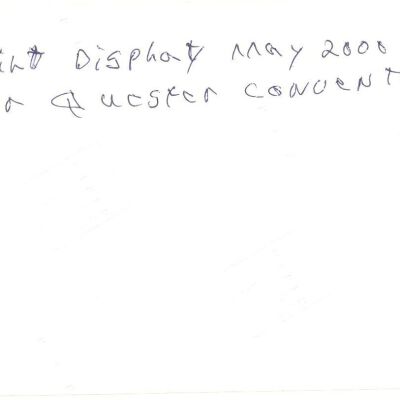 int Display May 2000
n Quester Convent